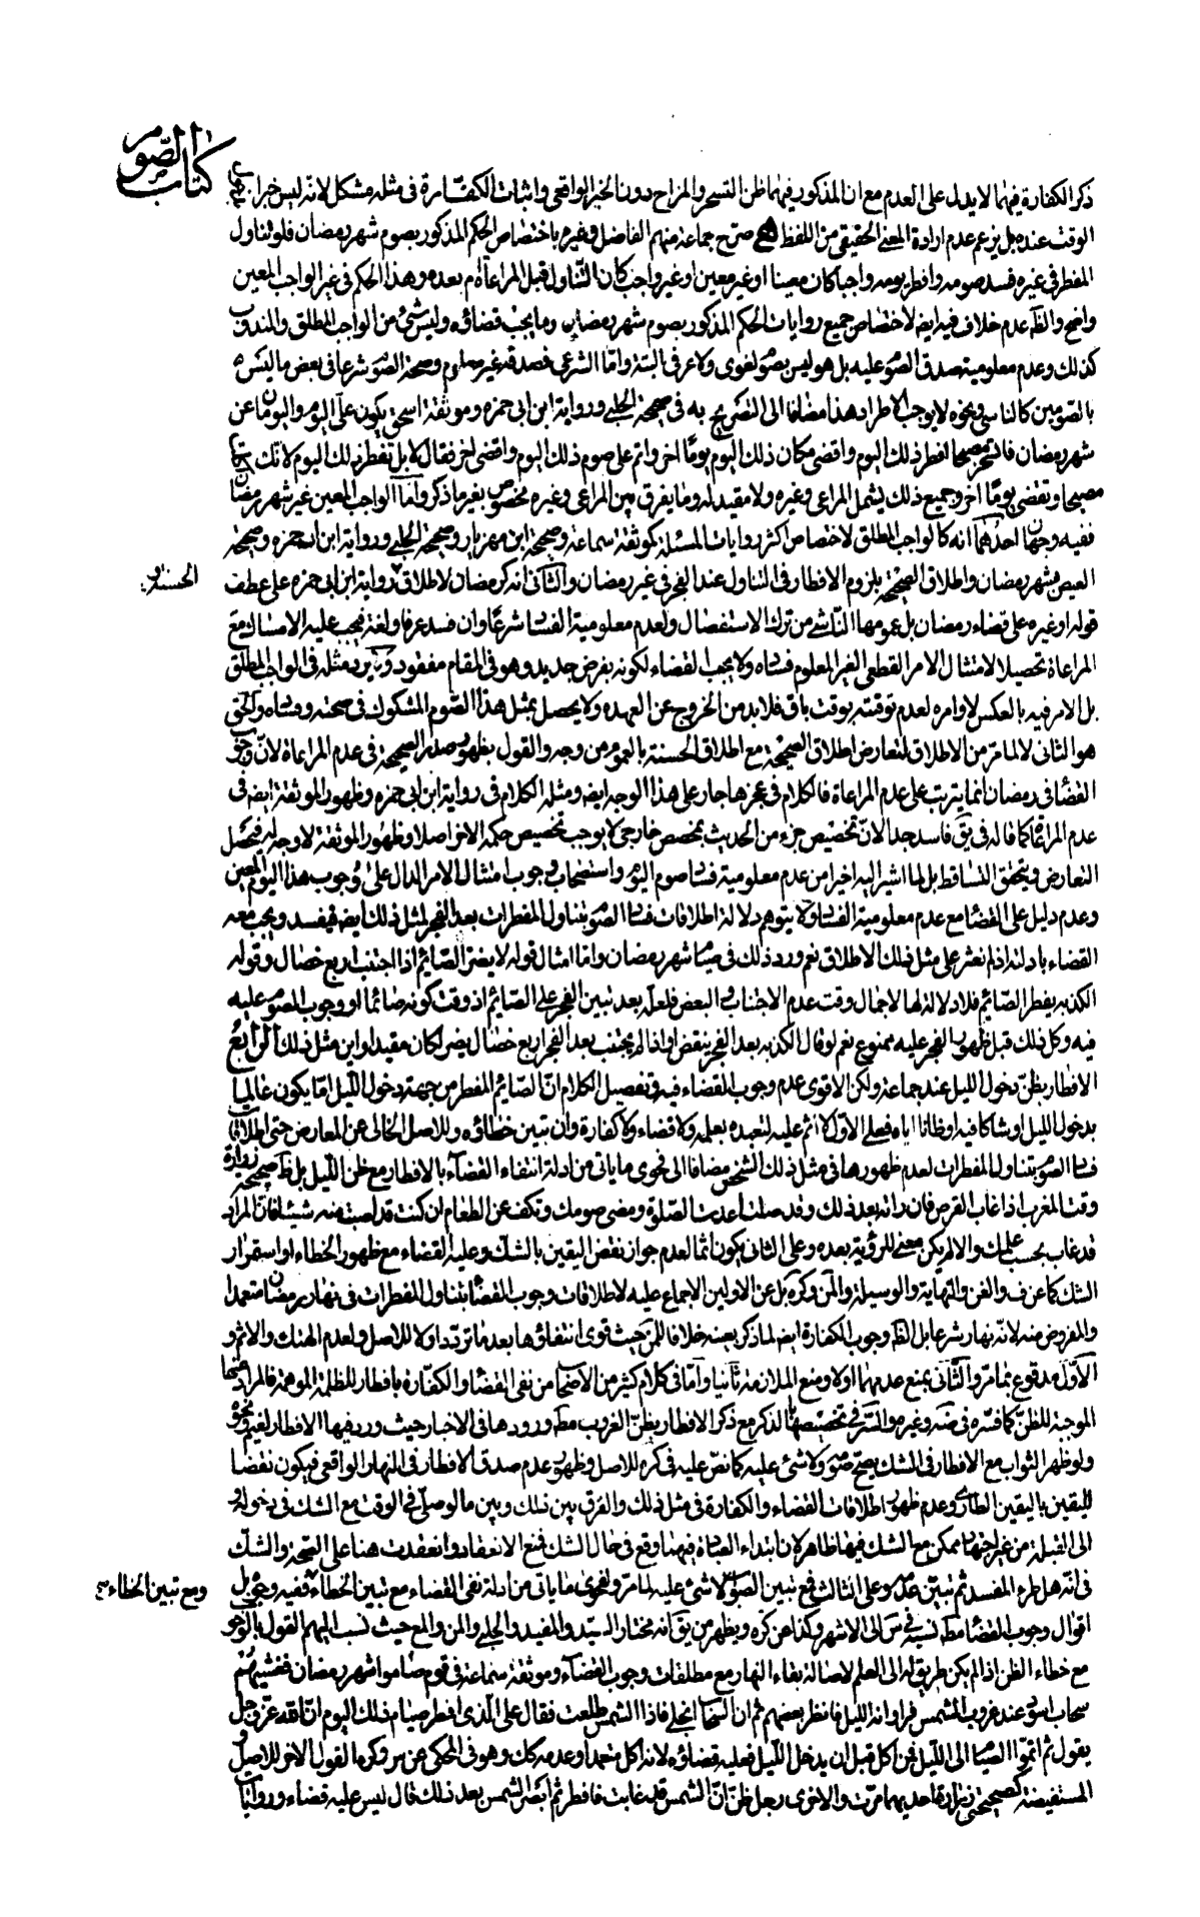 كتاب الصوم
ذكر الكفارة فيهما لا يدل على العدم مع ان المذكور فيهما ظن التسحر والمزاح دون الخبر الواقعى واثبات الكفّارة فى مثله مشكل لانه ليس خبرا
الوقت عنده بل يزعم عدم ارادة المعنى الحقيقى من اللفظ صرّح جماعة منهم الفاضل وغيره باختصاص الحكم المذكور بصوم شهر رمضان فلو تناول
المفطر فى غيره فسد صومه وافطر يومه واجبا كان معينا او غير معين او غير واجب كان التناول قبل المراعاة ام بعده وهذا الحكم فى غير الواجب المعين
واضح والظ عدم خلاف فيه ايضه لاختصاص جميع روايات الحكم المذكور بصوم شهر رمضان وما يجب قضاؤه وليس شئ من الواجب المطلق والمندوب
كذلك وعدم معلومية صدق الصوم عليه بل هو ليس بصوم لغوى ولا عرفى البتة واما الشرعى فصدقه غير معلوم وصحة الصوم شرعا فى بعض ما ليس
بالصومين كالناسى ونحوه لا يوجب الاطراد هذا مضافا الى التصريح به فى صحيحة الحلبى ورواية ابن ابى حمزه وموثقة اسحق يكون علىّ اليوم واليومان من
شهر رمضان فاتسحر مصبحا افطر ذلك اليوم واقضى مكان ذلك اليوم يومًا اخر واتم على صوم ذلك اليوم واقضى اخر فقال لا بل تفطر ذلك اليوم لانك اكلت
مصبحا وتقضى يومًا اخر وجميع ذلك يشمل المراعى وغيره ولا مقيد له وما يفرق بين المراعى وغيره مخصوص بغير ما ذكر وامّا الواجب المعين غير شهر رمضان
ففيه وجهان احدهما انه كالواجب المطلق لاختصاص اكثر روايات المسئلة كموثقة سماعة وصحيحة ابن مهزيار وصحيحة الحلبى ورواية ابن ابى حمزه وصحيحة
العيص بشهر رمضان واطلاق الصحيحة بلزوم الافطار فى التناول عند الفجر فى غير رمضان والثانى انه كرمضان لاطلاق رواية ابن ابى حمزه على عطف
قوله او غيره على قضاء رمضان بل عمومها الناشى من ترك الاستفصال ولعدم معلومية الفساد شرعًا وان فسد عرفا ولغة فيجب عليه الامساك مع
المراعاة تحصيلا لامتثال الامر القطعى الغير المعلوم فساده ولا يجب القضاء لكونه بفرض جديد وهو فى المقام مفقود ولا يرد مثله فى الواجب المطلق
بل الامر فيه بالعكس لاوامره لعدم توقيته بوقت باق فلابد من الخروج عن العهده ولا يحصل بمثل هذا الصوم المشكوك فى صحته وفساده والحق
هو الثانى لا لما مر من الاطلاق لتعارض اطلاق الصحيحة مع اطلاق الحسنة بالعموم من وجه والقول بظهور صدر الصحيحة فى عدم المراعاة لان وجوب
القضاء فى رمضان انما يترتب على عدم المراعاة فالكلام فى عجزها جار على هذا الوجه ايضه ومثله الكلام فى رواية ابن ابى حمزه وظهور الموثقة ايضه فى
عدم المراعاة كما قاله فى يق فاسد جدا لانّ تخصيص جزء من الحديث بمخصص خارجى لا يوجب تخصيص حكمه الاخر اصلا وظهور الموثقة لا وجه له فيحصل
التعارض ويتحقق التساقط بل لما اشير اليه اخيرا من عدم معلومية فساد صوم اليوم واستصحاب وجوب امتثال الامر الدال على وجوب هذا اليوم المعين
وعدم دليل على القضاء مع عدم معلومية الفساد ولا يتوهم دلالة اطلاقات فساد الصوم بتناول المفطرات بعد الفجر لمثل ذلك ايضه فيفسد ويجب معه
القضاء بادلته اذ لم نعثر على مثل ذلك الاطلاق نعم ورد ذلك فى صيام شهر رمضان واما امثال قوله لا يضر الصّائم اذا اجتنب اربع خصال وقوله
الكذبه يفطر الصّائم فلا دلالة لها لاجمال وقت عدم الاجتناب فى البعض فلعله بعد تبين الفجر على الصّائم اذ وقت كونه صائما او وجوب الصوم عليه
فيه وكل ذلك قبل ظهور الفجر عليه ممنوع نعم لو قال الكذبه بعد الفجر ينقض او اذا لم يجتنب بعد الفجر اربع خصال يضر لكان مقيدا واين مثل ذلك الرّابع
الافطار بظنّ دخول الليل عند جماعة ولكن الاقوى عدم وجوب القضاء فيه وتفصيل الكلام انّ الصّائم المفطر من جهة دخول اللّيل امّا يكون عالما
بدخول الليل او شاكا فيه او ظانا اياه فعلى الاوّل لا اثم عليه لتعبده بعلمه ولا قضاء ولا كفارة وان تبين خطاؤه وللاصل الخالى عن المعارض حتى اطلاقات
فساد الصوم بتناول المفطرات لعدم ظهورها فى مثل ذلك الشخص مضافا الى فحوى ما ياتى من ادلة انتفاء القضآء بالافطار مع ظن اللّيل بل ظ صحيحة زرارة
وقت المغرب اذا غاب القرص فان رايته بعد ذلك وقد صليت اعدت الصّلوة ومضى صومك وتكف عن الطعام ان كنت قد اصبت منه شيئا فانّ المراد
قد غاب بحسب علمك والا لم يكن معنى للرؤية بعده وعلى الثانى يكون اثما لعدم جواز نقض اليقين بالشكّ وعليه القضاء مع ظهور الخطاء او استمرار
الشك كما عن ف والغنية والنهاية والوسيلة والمن وكره بل عن الاولين الاجماع عليه لاطلاقات وجوب القضاء بتناول المفطرات فى نهار رمضان متعمدا
والمفروض منه لانه نهار شرعا بل الظ وجوب الكفارة ايضه لما ذكر بعينه خلافا للمن حيث قوى انتفاؤها بعد ما تردد اولا للاصل ولعدم الهتك والاثم و
الاوّل مدفوع بما مرّ والثّانى بمنع عدمهما اولا ومنع الملازمة ثانيا وامّا فى كلام كثير من الاصحاب من نفى القضاء والكفّارة بافطار للظلمة الموهمة فالمراد منها
الموجبة للظنّ كما فسّره فى ضه وغيره والسر فى تخصيصها بالذكر مع ذكر الافطار بظن الغروب مط ورودها فى الاخبار حيث ورد فيها الافطار لغيم ونحوه
ولو ظهر الثواب مع الافطار فى الشك يصحّ صومه ولا شئ عليه كما نص عليه فى كره للاصل وظهور عدم صدق الافطار فى النهار الواقعى فيكون نقضا
لليقين باليقين الطارئ وعدم ظهور اطلاقات القضاء والكفارة فى مثل ذلك والفرق بين ذلك وبين ما لو صلّى فى الوقت مع الشك فى دخوله او
الى القبلة من غير اجتهاد ممكن مع الشك فيها ظاهر لان ابتداء العبادة فيهما وقع فى حال الشك فمنع الانعقاد وانعقدت هنا على الصّحة والشك
فى انّه هل طرء المفسد ثم تبيّن عدمه وعلى الثالث فمع تبين الصواب لا شئ عليه لما مر ولفحوى ما ياتى من ادلة نفى القضاء مع تبين الخطاء ففيه وجوه بل
اقوال وجوب القضاء مط نسبه فى س الى الاشهر وكذا عن كره ويظهر من يق انه مختار السيّد والمفيد والحلبى والمن والمع حيث نسب اليهم القول بالوجوب
مع خطاء الظن اذا لم يكن طريق له الى العلم لاصالة بقاء النهار مع مطلقات وجوب القضآء وموثقة سماعة فى قوم صاموا شهر رمضان فغشيهم
سحاب اسود عند غروب الشمس فراوا انه الليل فافطر بعضهم ثم ان السحاب انجلى فاذا الشمس طلعت فقال على الّذى افطر صيام ذلك اليوم ان الله عز وجل
يقول ثم اتموا الصيام الى اللّيل فمن اكل قبل ان يدخل اللّيل فعليه قضاؤه لانه اكل متعمدا وعدمه كك وهو فى المحكى عن س وكره القول الاخر للاصل و
المستفيضة كصحيحتى زرارة احديهما مرّت والاخرى رجل ظنّ انّ الشمس قد غابت فافطر ثم ابصر الشمس بعد ذلك قال ليس عليه قضاء وروايتا
الحسنة
ومع تبين الخطاء